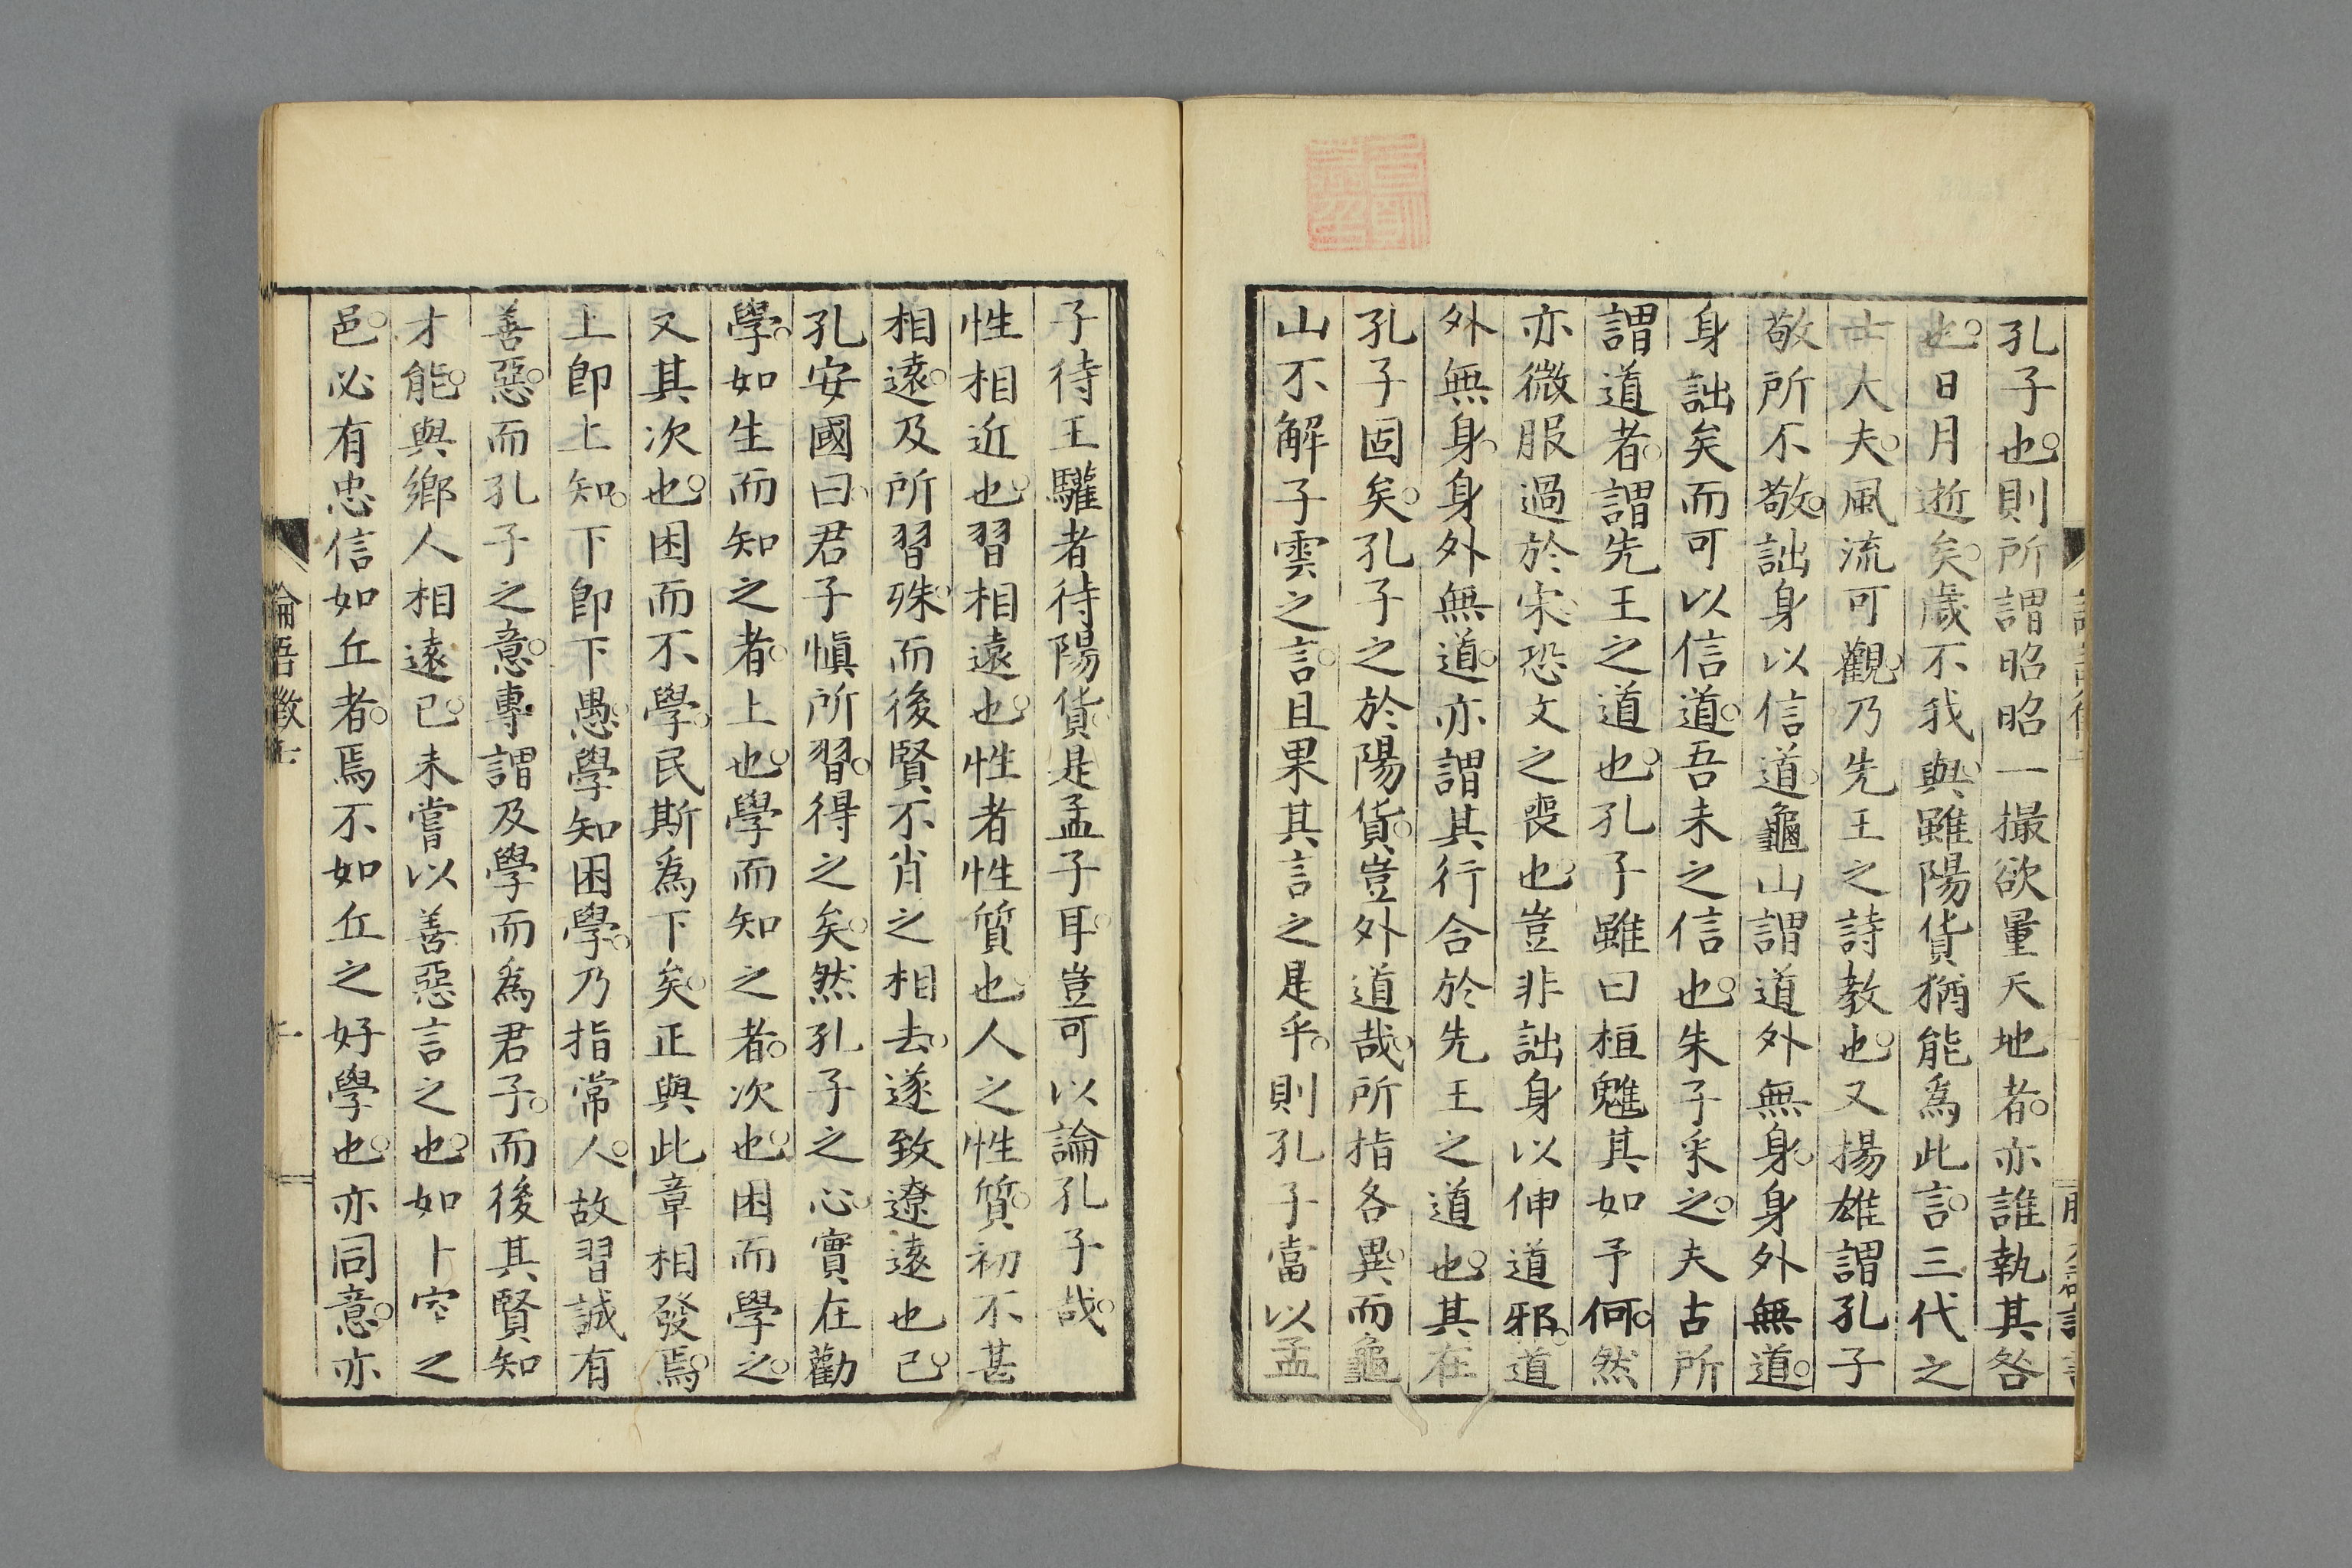 孔子也。則所謂昭昭一撮欲量天地者。亦誰執其咎
也。日月逝矣。歲不我與。雖陽貨猶能爲此言。三代之
士大夫。風流可觀。乃先王之詩教也。又揚雄謂孔子
敬所不敬。詘身以信道。龜山謂道外無身。身外無道。
身詘矣而可以信道。吾未之信也。朱子采之。夫古所
謂道者。謂先王之道也。孔子雖曰桓魋其如予何。然
亦微服過於宋。恐文之喪也。豈非詘身以伸道邪。道
外無身。身外無道。亦謂其行合於先王之道也。其在
孔子固矣。孔子之於陽貨。豈外道哉。所指各異。而龜
山不解子雲之言。且果其言之是乎。則孔子當以孟
子待王驩者待陽貨。是孟子耳。豈可以論孔子哉。
性相近也。習相遠也。性者性質也。人之性質。初不甚
相遠。及所習殊。而後賢不肖之相去。遂致遼遠也已。
孔安國曰。君子慎所習。得之矣。然孔子之心。實在勸
學。如生而知之者。上也。學而知之者。次也。困而學之。
又其次也。困而不學。民斯爲下矣。正與此章相發焉。
上卽上知。下卽下愚。學知困學。乃指常人。故習誠有
善惡。而孔子之意。專謂及學而爲君子。而後其賢知
才能。與鄉人相遠已。未嘗以善惡言之也。如十室之
邑。必有忠信如丘者。焉不如丘之好學也。亦同意。亦
論語徵